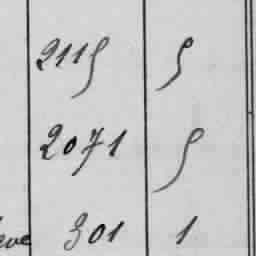 2115 5
2071 5
301 1